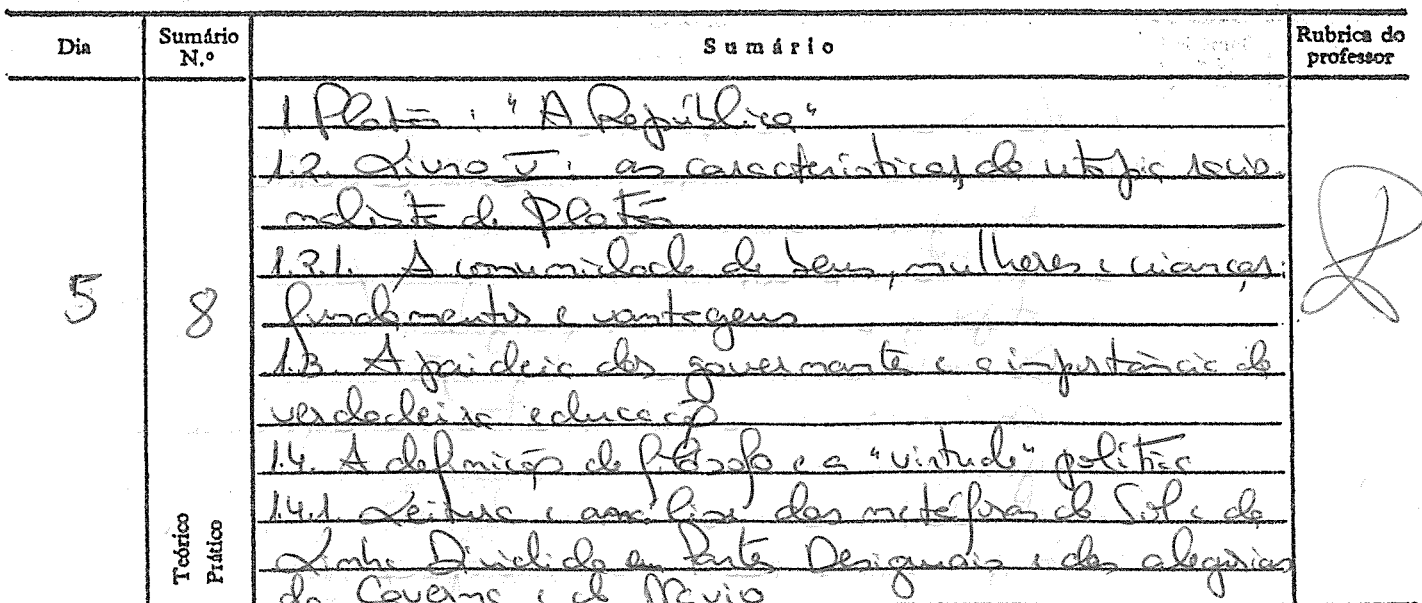 Dia Sumário N.º Sumário Rubrica do professor
1 Platão: "A República"
1.2. Livro V: as características da utopia socio-
nalista de Platão
1.2.1. A comunidade de bens, mulheres e crianças:
fundamentos e vantagens
5 8
1.3. A paideia dos governantes e a importância da
verdadeira educação
1.4. A definição de filósofo e a "virtude" política
1.4.1 Leitura e análise das metáforas do Sol e da
Linha Dividida em Partes Desiguais e das alegorias
da Caverna e do Navio
Teórico
Prático